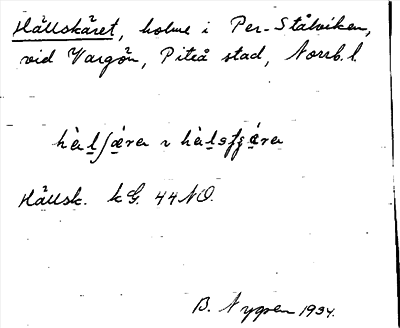 Hällskäret, holme i Per-Stålviken,
vid Vargön, Piteå stad, Norrb. l.
Hällsk. kG. 44 NO.
B. Nygren 1934.